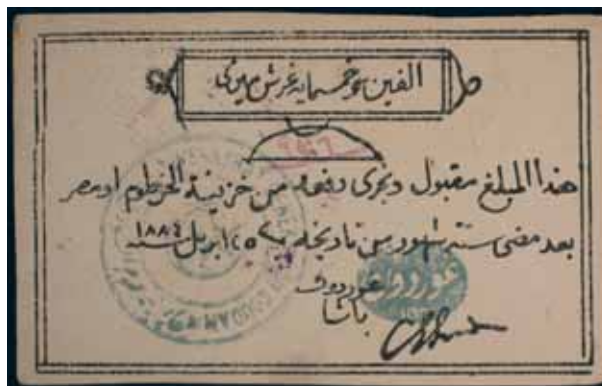 الفين وخمسماية غرش ميري
هذا المبلغ مقبول ويجرى دفعه من خزينة الخرطوم او مصر
بعد مضى ستة شهور من تاريخه ٢٥ ابريل سنة ١٨٨٤
غوردون
باشا